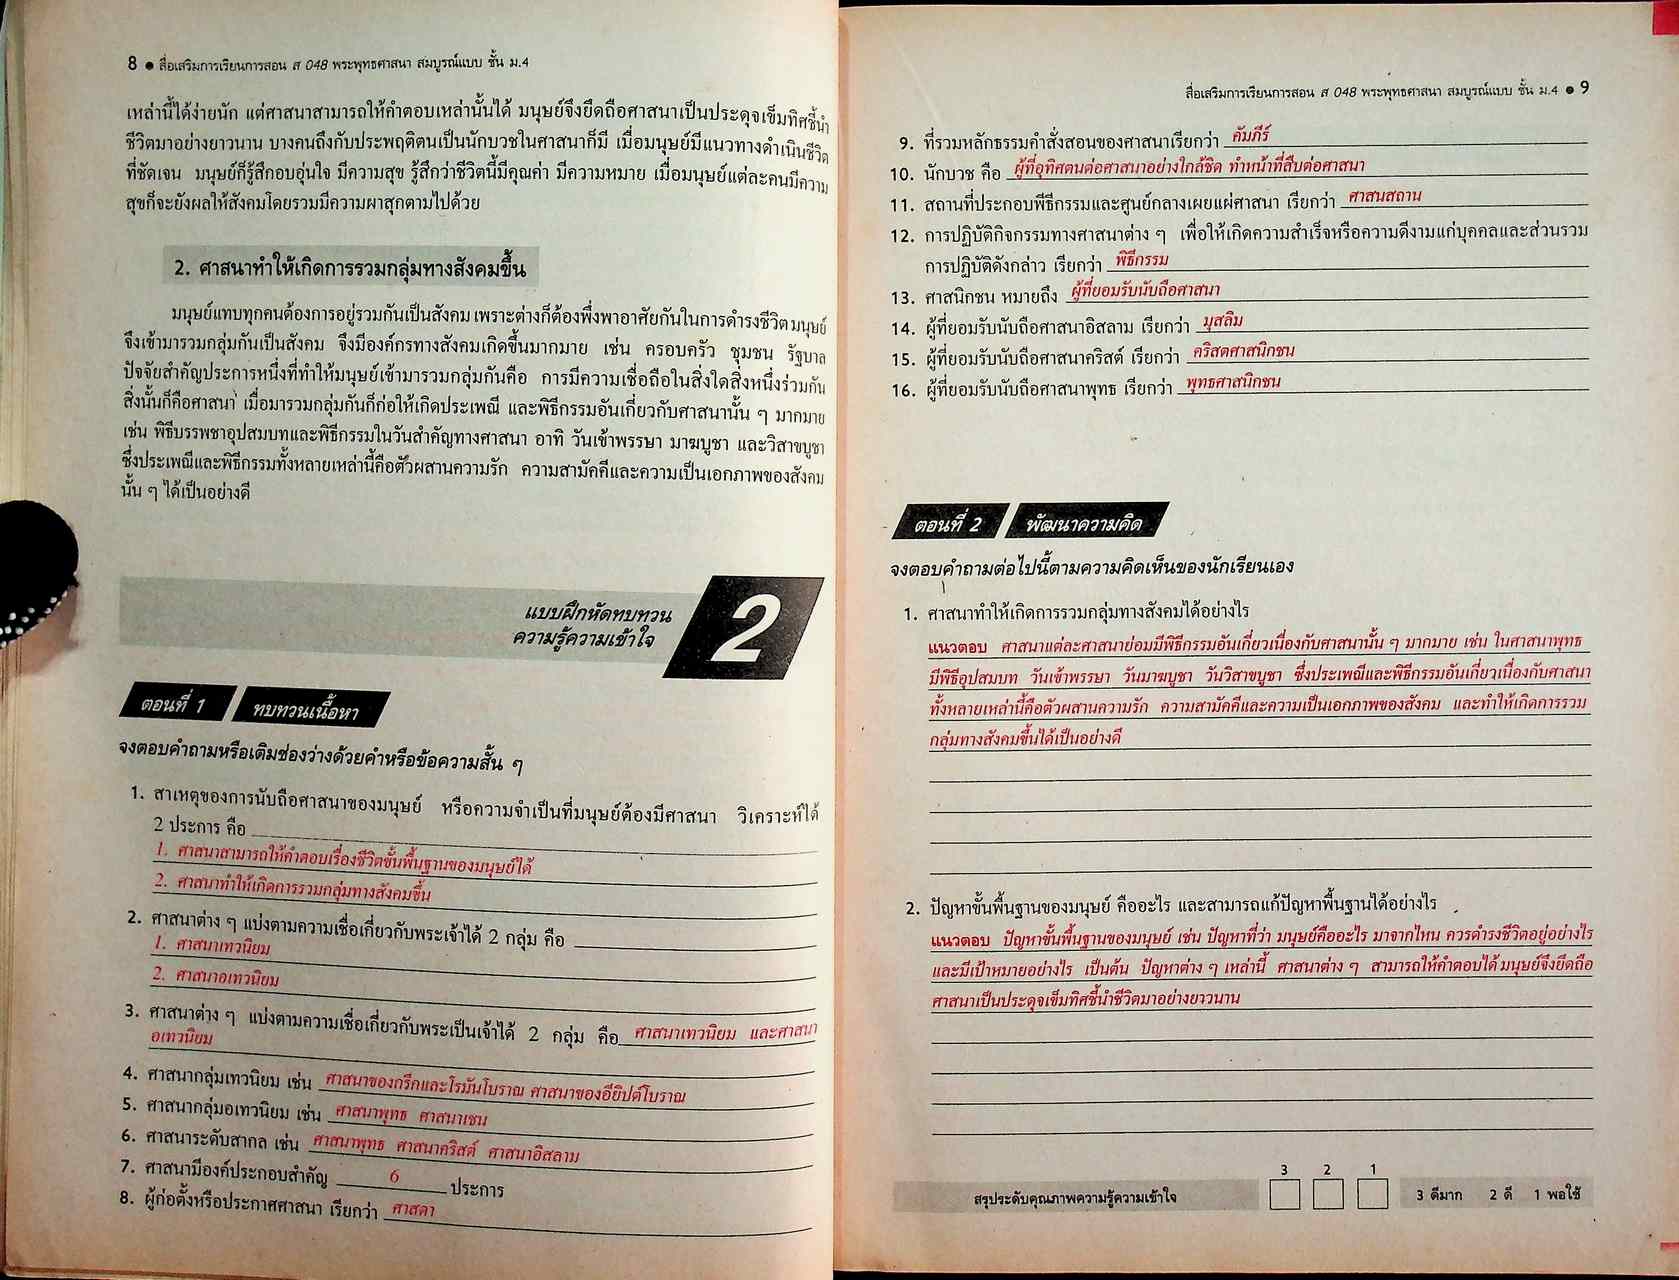 8 ● สื่อเสริมการเรียนการสอน ส 048 พระพุทธศาสนา สมบูรณ์แบบ ชั้น ม.4
เหล่านี้ได้ง่ายนัก แต่ศาสนาสามารถให้คำตอบเหล่านั้นได้ มนุษย์จึงยึดถือศาสนาเป็นประดุจเข็มทิศชี้นำ
ชีวิตมาอย่างยาวนาน บางคนถึงกับประพฤติตนเป็นนักบวชในศาสนาก็มี เมื่อมนุษย์มีแนวทางดำเนินชีวิต
ที่ชัดเจน มนุษย์ก็รู้สึกอบอุ่นใจ มีความสุข รู้สึกว่าชีวิตนี้มีคุณค่า มีความหมาย เมื่อมนุษย์แต่ละคนมีความ
สุขก็จะยังผลให้สังคมโดยรวมมีความผาสุกตามไปด้วย
2. ศาสนาทำให้เกิดการรวมกลุ่มทางสังคมขึ้น
มนุษย์แทบทุกคนต้องการอยู่รวมกันเป็นสังคม เพราะต่างก็ต้องพึ่งพาอาศัยกันในการดำรงชีวิต มนุษย์
จึงเข้ามารวมกลุ่มกันเป็นสังคม จึงมีองค์กรทางสังคมเกิดขึ้นมากมาย เช่น ครอบครัว ชุมชน รัฐบาล
ปัจจัยสำคัญประการหนึ่งที่ทำให้มนุษย์เข้ามารวมกลุ่มกันคือ การมีความเชื่อถือในสิ่งใดสิ่งหนึ่งร่วมกัน
สิ่งนั้นก็คือศาสนา เมื่อมารวมกลุ่มกันก็ก่อให้เกิดประเพณี และพิธีกรรมอันเกี่ยวกับศาสนานั้น ๆ มากมาย
เช่น พิธีบรรพชาอุปสมบทและพิธีกรรมในวันสำคัญทางศาสนา อาทิ วันเข้าพรรษา มาฆบูชา และวิสาขบูชา
ซึ่งประเพณีและพิธีกรรมทั้งหลายเหล่านี้คือตัวผสานความรัก ความสามัคคีและความเป็นเอกภาพของสังคม
นั้น ๆ ได้เป็นอย่างดี
แบบฝึกหัดทบทวน
ความรู้ความเข้าใจ
2
ตอนที่ 1 ทบทวนเนื้อหา
จงตอบคำถามหรือเติมช่องว่างด้วยคำหรือข้อความสั้น ๆ
1. สาเหตุของการนับถือศาสนาของมนุษย์ หรือความจำเป็นที่มนุษย์ต้องมีศาสนา วิเคราะห์ได้
2 ประการ คือ
1. ศาสนาสามารถให้คำตอบเรื่องชีวิตขั้นพื้นฐานของมนุษย์ได้
2. ศาสนาทำให้เกิดการรวมกลุ่มทางสังคมขึ้น
2. ศาสนาต่าง ๆ แบ่งตามความเชื่อเกี่ยวกับพระเจ้าได้ 2 กลุ่ม คือ
1. ศาสนาเทวนิยม
2. ศาสนาอเทวนิยม
3. ศาสนาต่าง ๆ แบ่งตามความเชื่อเกี่ยวกับพระเป็นเจ้าได้ 2 กลุ่ม คือ ศาสนาเทวนิยม และศาสนา
อเทวนิยม
4. ศาสนากลุ่มเทวนิยม เช่น ศาสนาของกรีกและโรมันโบราณ ศาสนาของอียิปต์โบราณ
5. ศาสนากลุ่มอเทวนิยม เช่น ศาสนาพุทธ ศาสนาเชน
6. ศาสนาระดับสากล เช่น ศาสนาพุทธ ศาสนาคริสต์ ศาสนาอิสลาม
7. ศาสนามีองค์ประกอบสำคัญ 6 ประการ
8. ผู้ก่อตั้งหรือประกาศศาสนา เรียกว่า ศาสดา
สื่อเสริมการเรียนการสอน ส 048 พระพุทธศาสนา สมบูรณ์แบบ ชั้น ม.4 ● 9
9. ที่รวมหลักธรรมคำสั่งสอนของศาสนาเรียกว่า คัมภีร์
10. นักบวช คือ ผู้ที่อุทิศตนต่อศาสนาอย่างใกล้ชิด ทำหน้าที่สืบต่อศาสนา
11. สถานที่ประกอบพิธีกรรมและศูนย์กลางเผยแผ่ศาสนา เรียกว่า ศาสนสถาน
12. การปฏิบัติกิจกรรมทางศาสนาต่าง ๆ เพื่อให้เกิดความสำเร็จหรือความดีงามแก่บุคคลและส่วนรวม
การปฏิบัติดังกล่าว เรียกว่า พิธีกรรม
13. ศาสนิกชน หมายถึง ผู้ที่ยอมรับนับถือศาสนา
14. ผู้ที่ยอมรับนับถือศาสนาอิสลาม เรียกว่า มุสลิม
15. ผู้ที่ยอมรับนับถือศาสนาคริสต์ เรียกว่า คริสตศาสนิกชน
16. ผู้ที่ยอมรับนับถือศาสนาพุทธ เรียกว่า พุทธศาสนิกชน
ตอนที่ 2 พัฒนาความคิด
จงตอบคำถามต่อไปนี้ตามความคิดเห็นของนักเรียนเอง
1. ศาสนาทำให้เกิดการรวมกลุ่มทางสังคมได้อย่างไร
แนวตอบ ศาสนาแต่ละศาสนาย่อมมีพิธีกรรมอันเกี่ยวเนื่องกับศาสนานั้น ๆ มากมาย เช่น ในศาสนาพุทธ
มีพิธีอุปสมบท วันเข้าพรรษา วันมาฆบูชา วันวิสาขบูชา ซึ่งประเพณีและพิธีกรรมอันเกี่ยวเนื่องกับศาสนา
ทั้งหลายเหล่านี้คือตัวผสานความรัก ความสามัคคีและความเป็นเอกภาพของสังคม และทำให้เกิดการรวม
กลุ่มทางสังคมขึ้นได้เป็นอย่างดี
2. ปัญหาขั้นพื้นฐานของมนุษย์ คืออะไร และสามารถแก้ปัญหาพื้นฐานได้อย่างไร
แนวตอบ ปัญหาขั้นพื้นฐานของมนุษย์ เช่น ปัญหาที่ว่า มนุษย์คืออะไร มาจากไหน ควรดำรงชีวิตอยู่อย่างไร
และมีเป้าหมายอย่างไร เป็นต้น ปัญหาต่าง ๆ เหล่านี้ ศาสนาต่าง ๆ สามารถให้คำตอบได้ มนุษย์จึงยึดถือ
ศาสนาเป็นประดุจเข็มทิศชี้นำชีวิตมาอย่างยาวนาน
3 2 1
สรุประดับคุณภาพความรู้ความเข้าใจ 3 ดีมาก 2 ดี 1 พอใช้